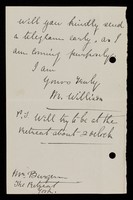 will you kindly send
a telegram early, as I
am coming purposely.
I am
Yours truly
M. Williss
P.S. Will try to be at the
retreat about 2 oclock
The Retreat
York